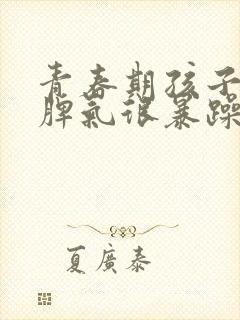 青春期孩子
脾氣很暴躁
夏廣泰